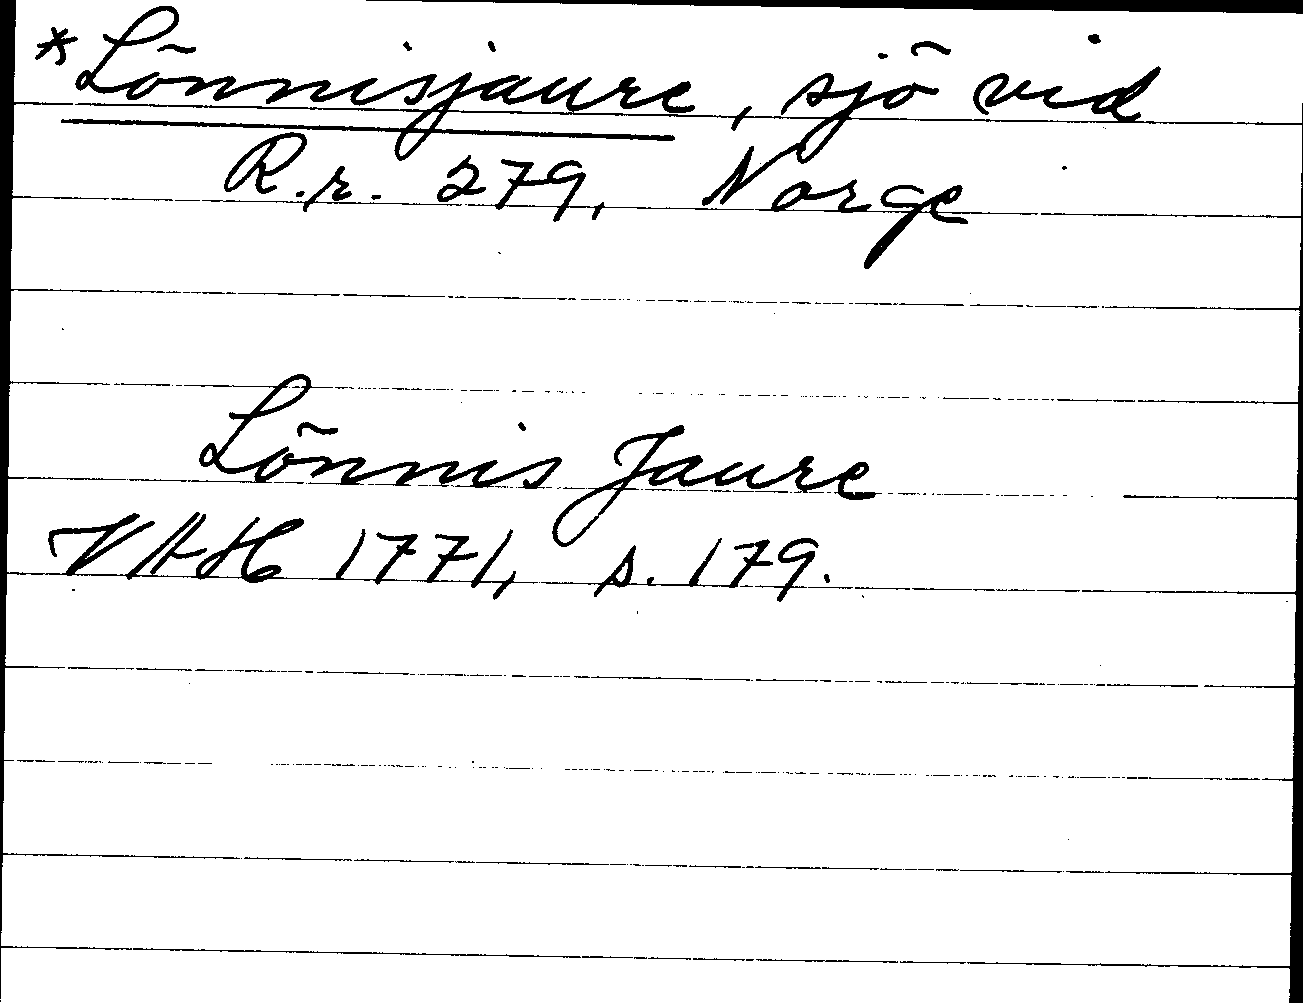 *Lönnisjaure, sjö vid
R.r. 279, Norge
Lönnis Jaure
VAH 1771, s. 179.